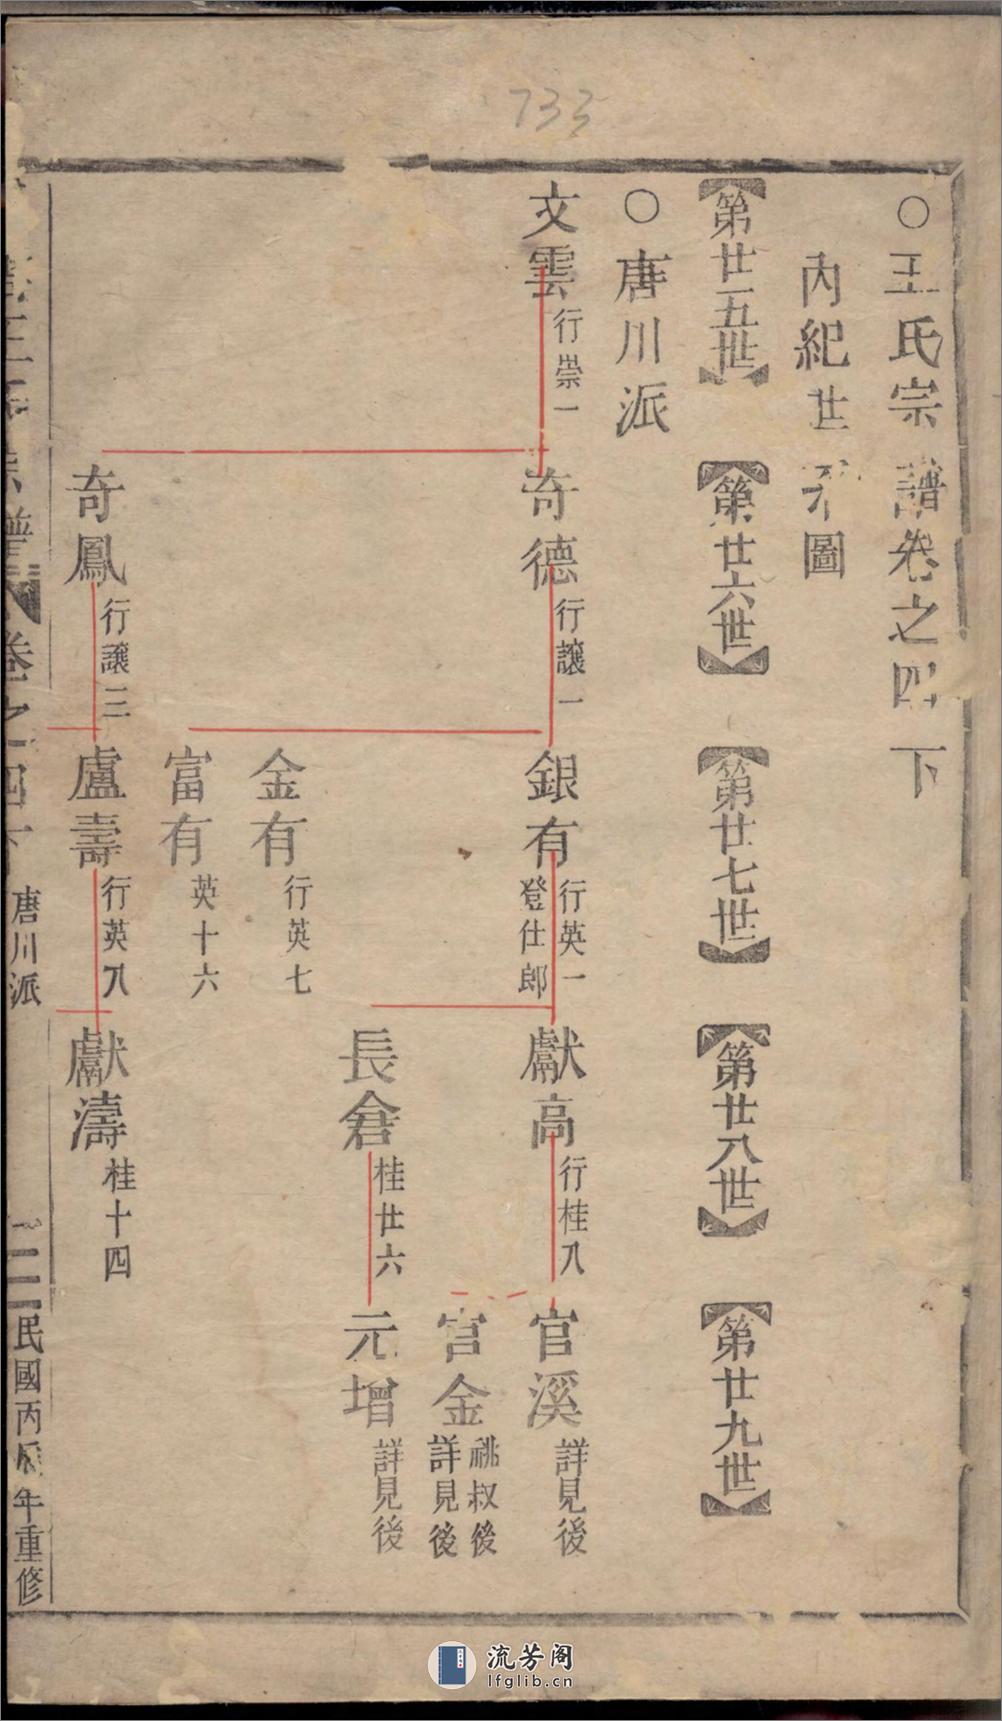 733
○王氏宗譜卷之四下
內紀世系圖
第廿五世
第廿六世
第廿七世
第廿八世
第廿九世
○唐川派
文雲 行崇一
奇德 行讓一
銀有 行英一 登仕郎
獻高 行桂八
官溪 詳見後
官金 祧叔後 詳見後
長倉 桂廿六
元增 詳見後
金有 行英七
富有 英十六
奇鳳 行讓三
盧壽 行英八
獻濤 桂十四
王氏宗譜 卷之四下 唐川派 一 民國丙辰年重修
流芳阁
lfglib.cn